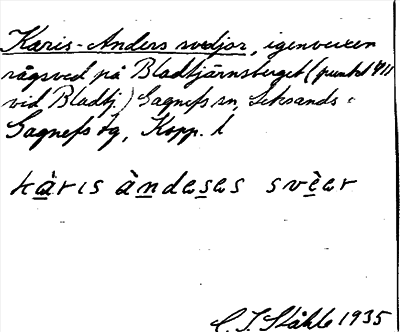 Karis-Anders svedjor, igenvuxen
rågsved på Bladtjärnsberget (punkt 411
vid Bladtj.) Gagnefs sn, Leksands o
Gagnefs tg, Kopp. l
kàris àndeses svèer
C. I. Ståhle 1935